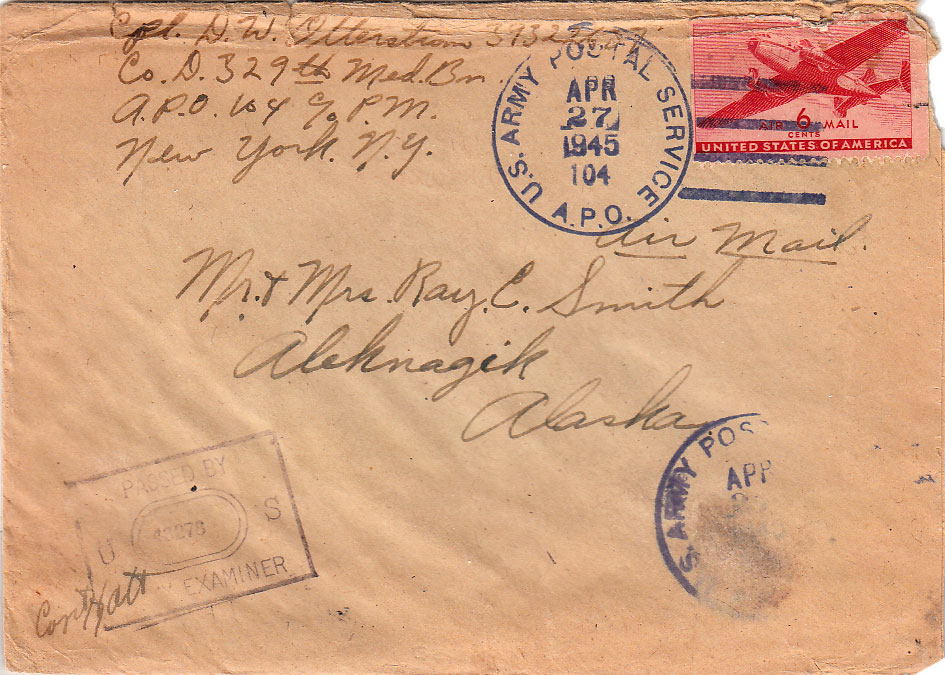 Cpl. D. W. Otterstrom
Co. D. 329th Med. Bn.
A.P.O. 104 c/o P.M.
New York. N.Y.
U.S. ARMY POSTAL SERVICE
APR
27
1945
104
A.P.O.
AIR 6 MAIL
CENTS
UNITED STATES OF AMERICA
Air Mail.
Mr. & Mrs. Ray. C. Smith
Aleknagik
Alaska
PASSED BY
U S
EXAMINER
S. ARMY POS
APR